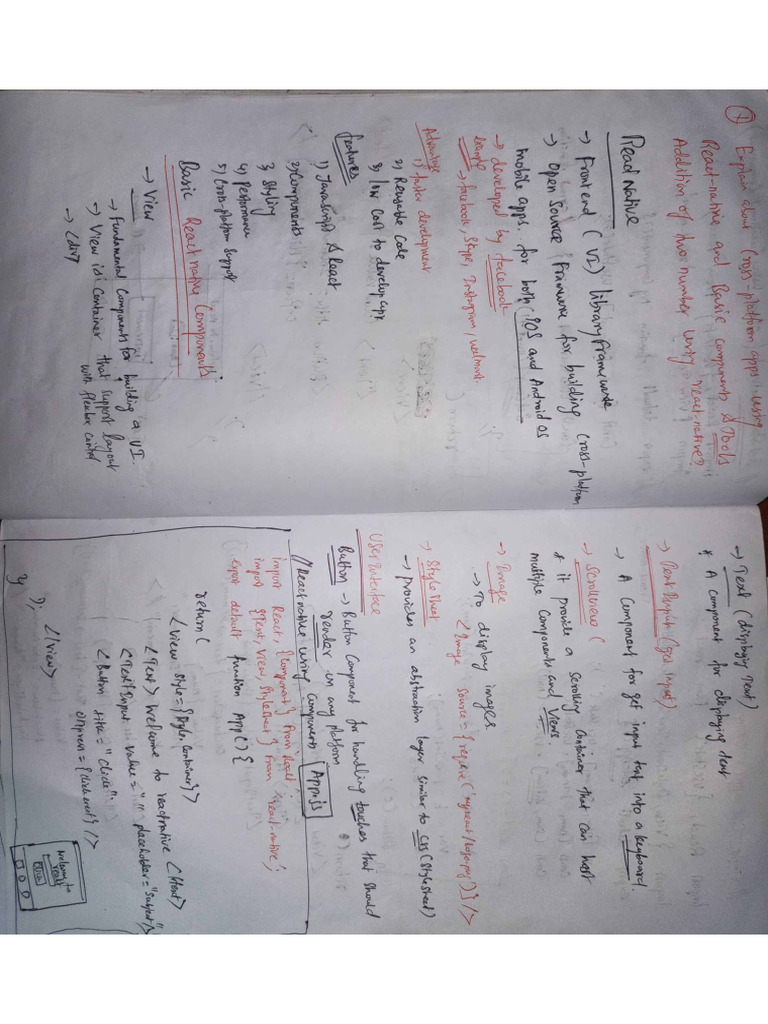 7 Explain about Cross-platform apps using
React-native and Basic components & Tools
Addition of two number using react-native?
React native
→ Frontend (UI) library framework
→ open source framwore for building Cross-platform
mobile apps. for both IOS and Android OS
→ developed by facebook
Example → facebook, Skype, Instagram, walmart
Advantage
1) faster development
2) Reusable Code
3) low Cost to develop app
Features
1) JavaScript & React
2) Components
3) Styling
4) Performance
5) Cross-platform support
Basic React native Components
→ View
→ Fundamental Components for building a UI.
→ View is Container that support layout
with flexbox control
→ <div>
→ Text (displaying Text)
* A Component for displaying text
→ Text Input (get input)
→ A Component for get input text into a keyboard.
→ Scrollview (
& it provide a scrolling Container that can host
multiple Components and Views
→ Image
→ To display images
<Image source = {require('')} />
→ Style Sheet
→ Provides an abstraction layer similar to CSS (StyleSheet)
User Interface
Button → Button Component for handling touches that should
render in any platform
// React native using Components App.js
import React, {Component} from 'React';
import {Text, View, StyleSheet} from 'react-native';
export default function App() {
return (
<View style = {styles.container}>
<Text> Welcome to reactnative